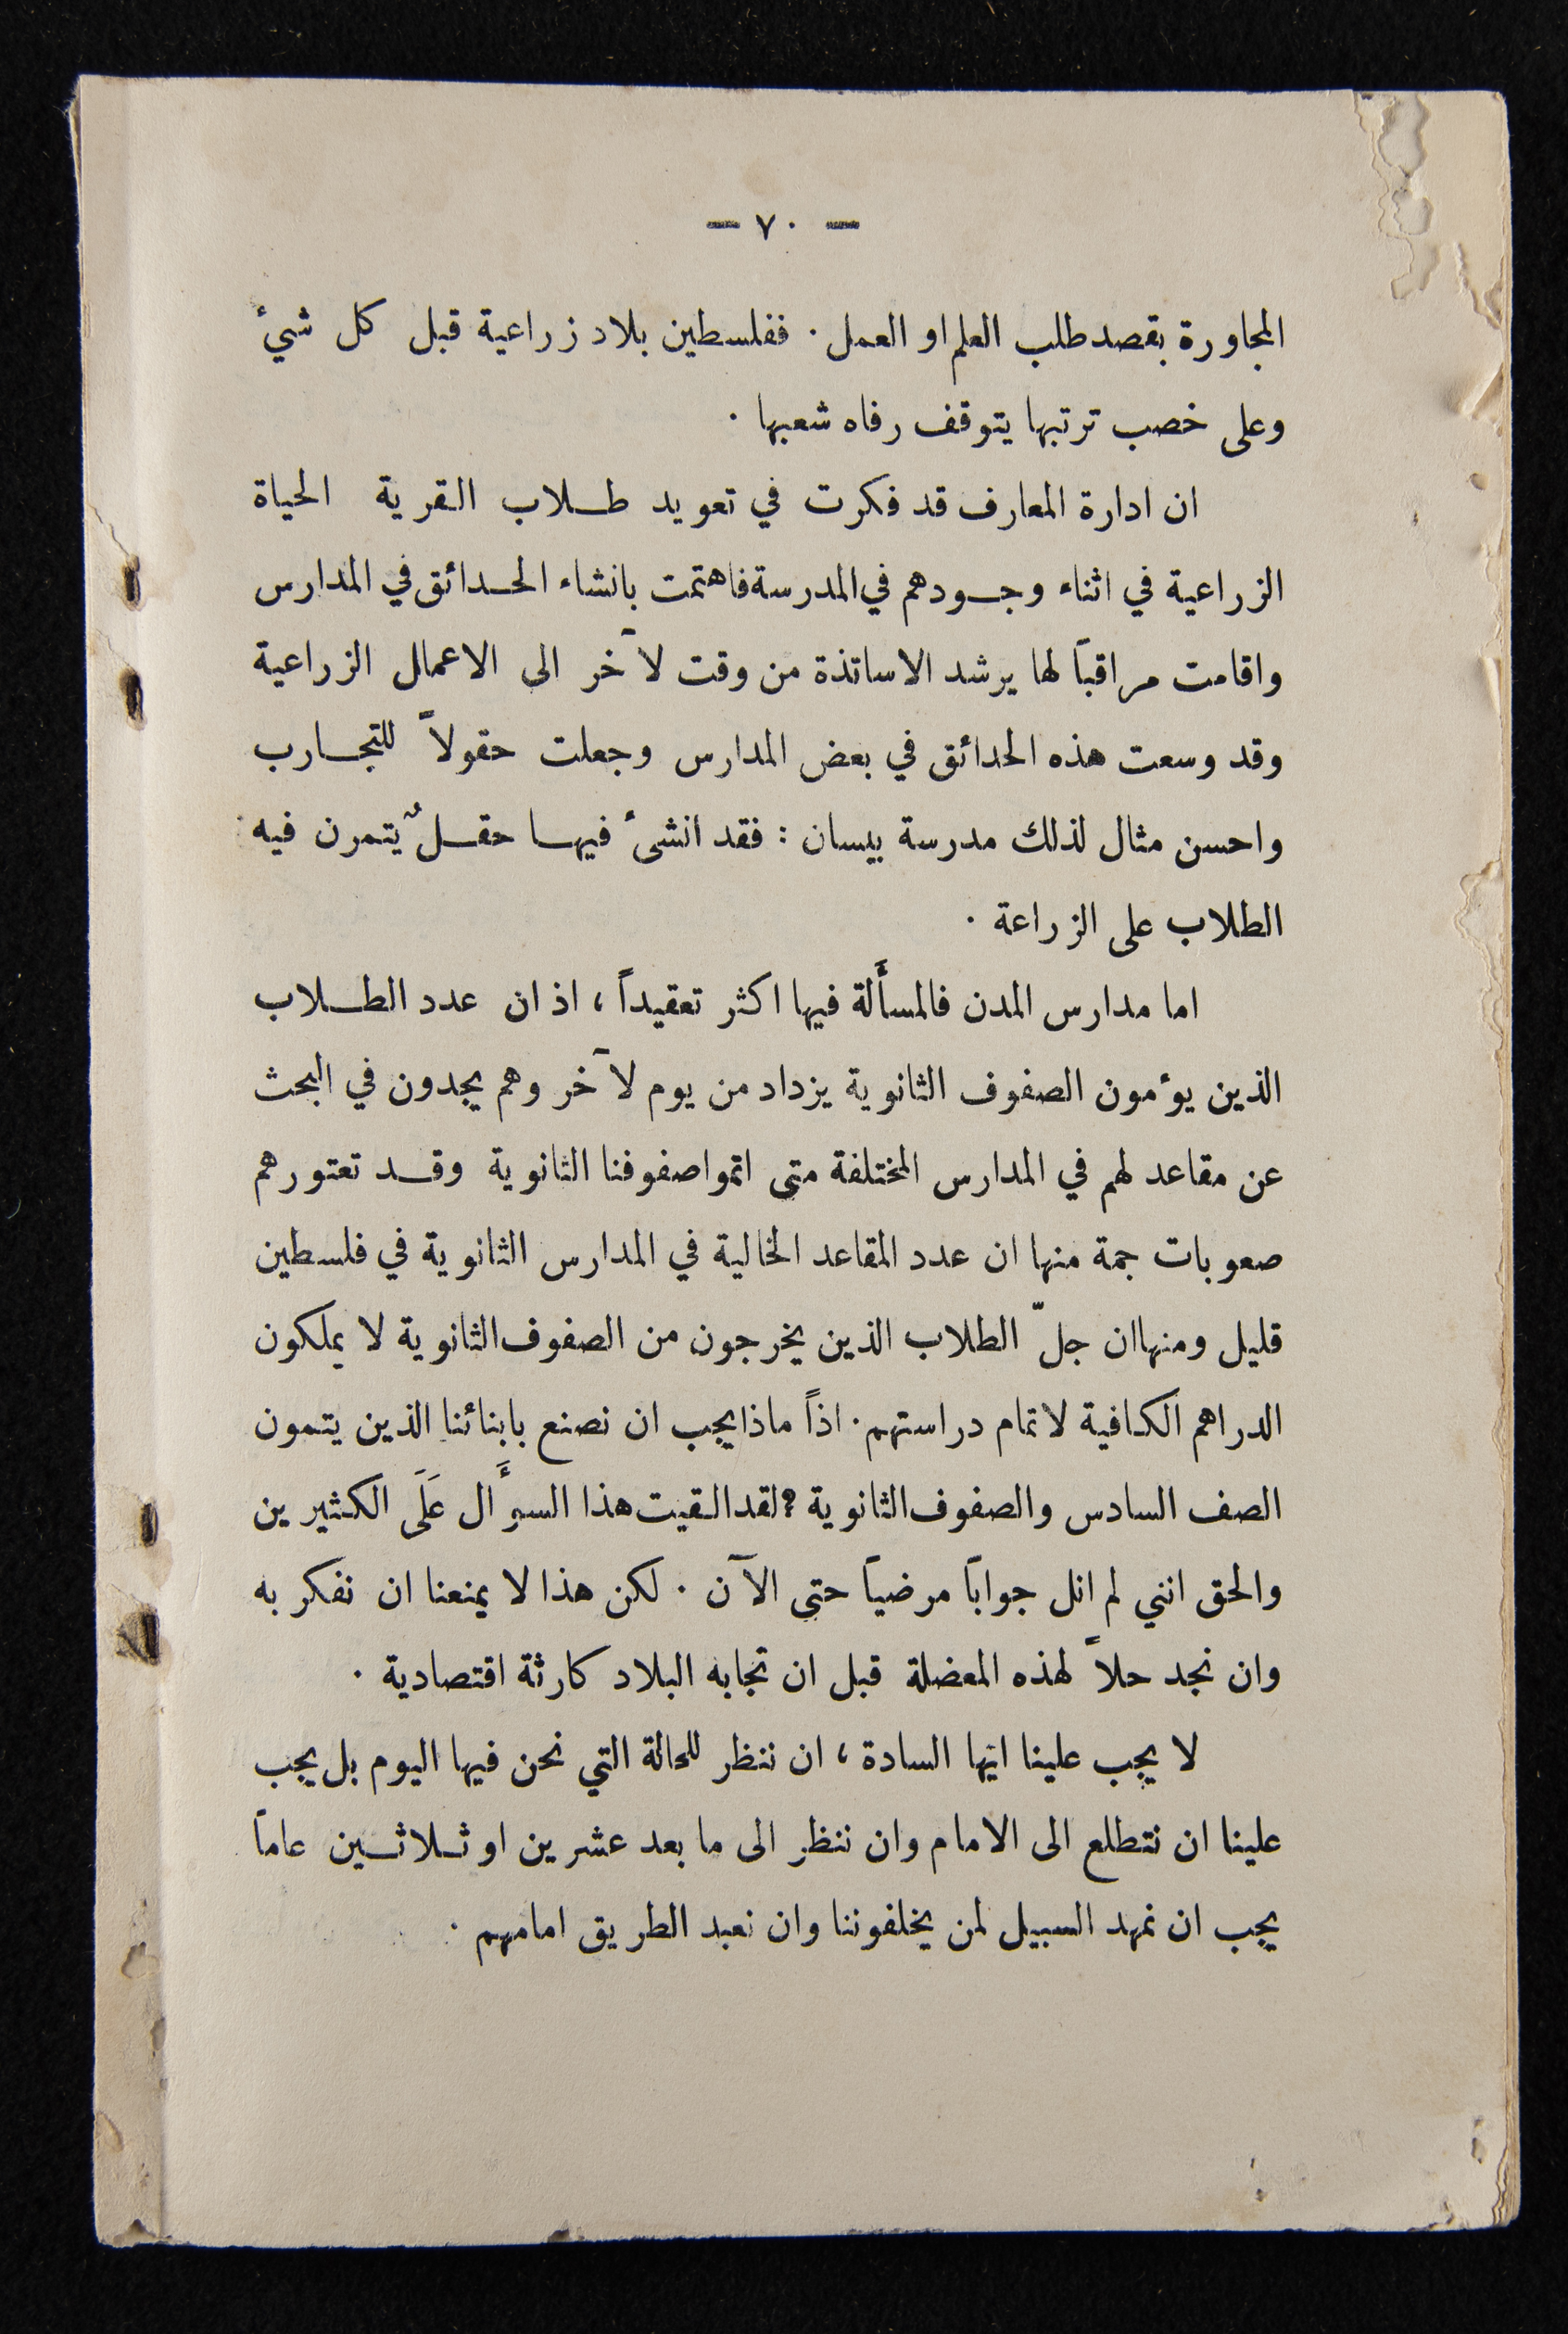 — ٧٠ —
المجاورة بقصد طلب العلم او العمل . ففلسطين بلاد زراعية قبل كل شيءٔ
وعلى خصب تربتها يتوقف رفاه شعبها .
ان ادارة المعارف قد فكرت في تعويد طلاب القرية الحياة
الزراعية في اثناء وجودهم في المدرسة فاهتمت بانشاء الحدائق في المدارس
واقامت مراقباً لها يرشد الاساتذة من وقت لآخر الى الاعمال الزراعية
وقد وسعت هذه الحدائق في بعض المدارس وجعلت حقولاً للتجارب
واحسن مثال لذلك مدرسة بيسان : فقد انشئ فيها حقلٌ يتمرن فيه
الطلاب على الزراعة .
اما مدارس المدن فالمسأَلة فيها اكثر تعقيداً ، اذ ان عدد الطلاب
الذين يؤمون الصفوف الثانوية يزداد من يوم لآخر وهم يجدون في البحث
عن مقاعد لهم في المدارس المختلفة متى اتموا صفوفنا الثانوية وقد تعتورهم
صعوبات جمة منها ان عدد المقاعد الخالية في المدارس الثانوية في فلسطين
قليل ومنها ان جلّ الطلاب الذين يخرجون من الصفوف الثانوية لا يملكون
الدراهم الكافية لاتمام دراستهم . اذاً ماذا يجب ان نصنع بابنائنا الذين يتمون
الصف السادس والصفوف الثانوية ؟ لقد القيت هذا السؤَال عَلَى الكثيرين
والحق انني لم انل جواباً مرضياً حتى الآن . لكن هذا لا يمنعنا ان نفكر به
وان نجد حلاً لهذه المعضلة قبل ان تجابه البلاد كارثة اقتصادية .
لا يجب علينا ايها السادة ، ان ننظر للحالة التي نحن فيها اليوم بل يجب
علينا ان نتطلع الى الامام وان ننظر الى ما بعد عشرين او ثلاثين عاماً
يجب ان نمهد السبيل لمن يخلفوننا وان نعبد الطريق امامهم .